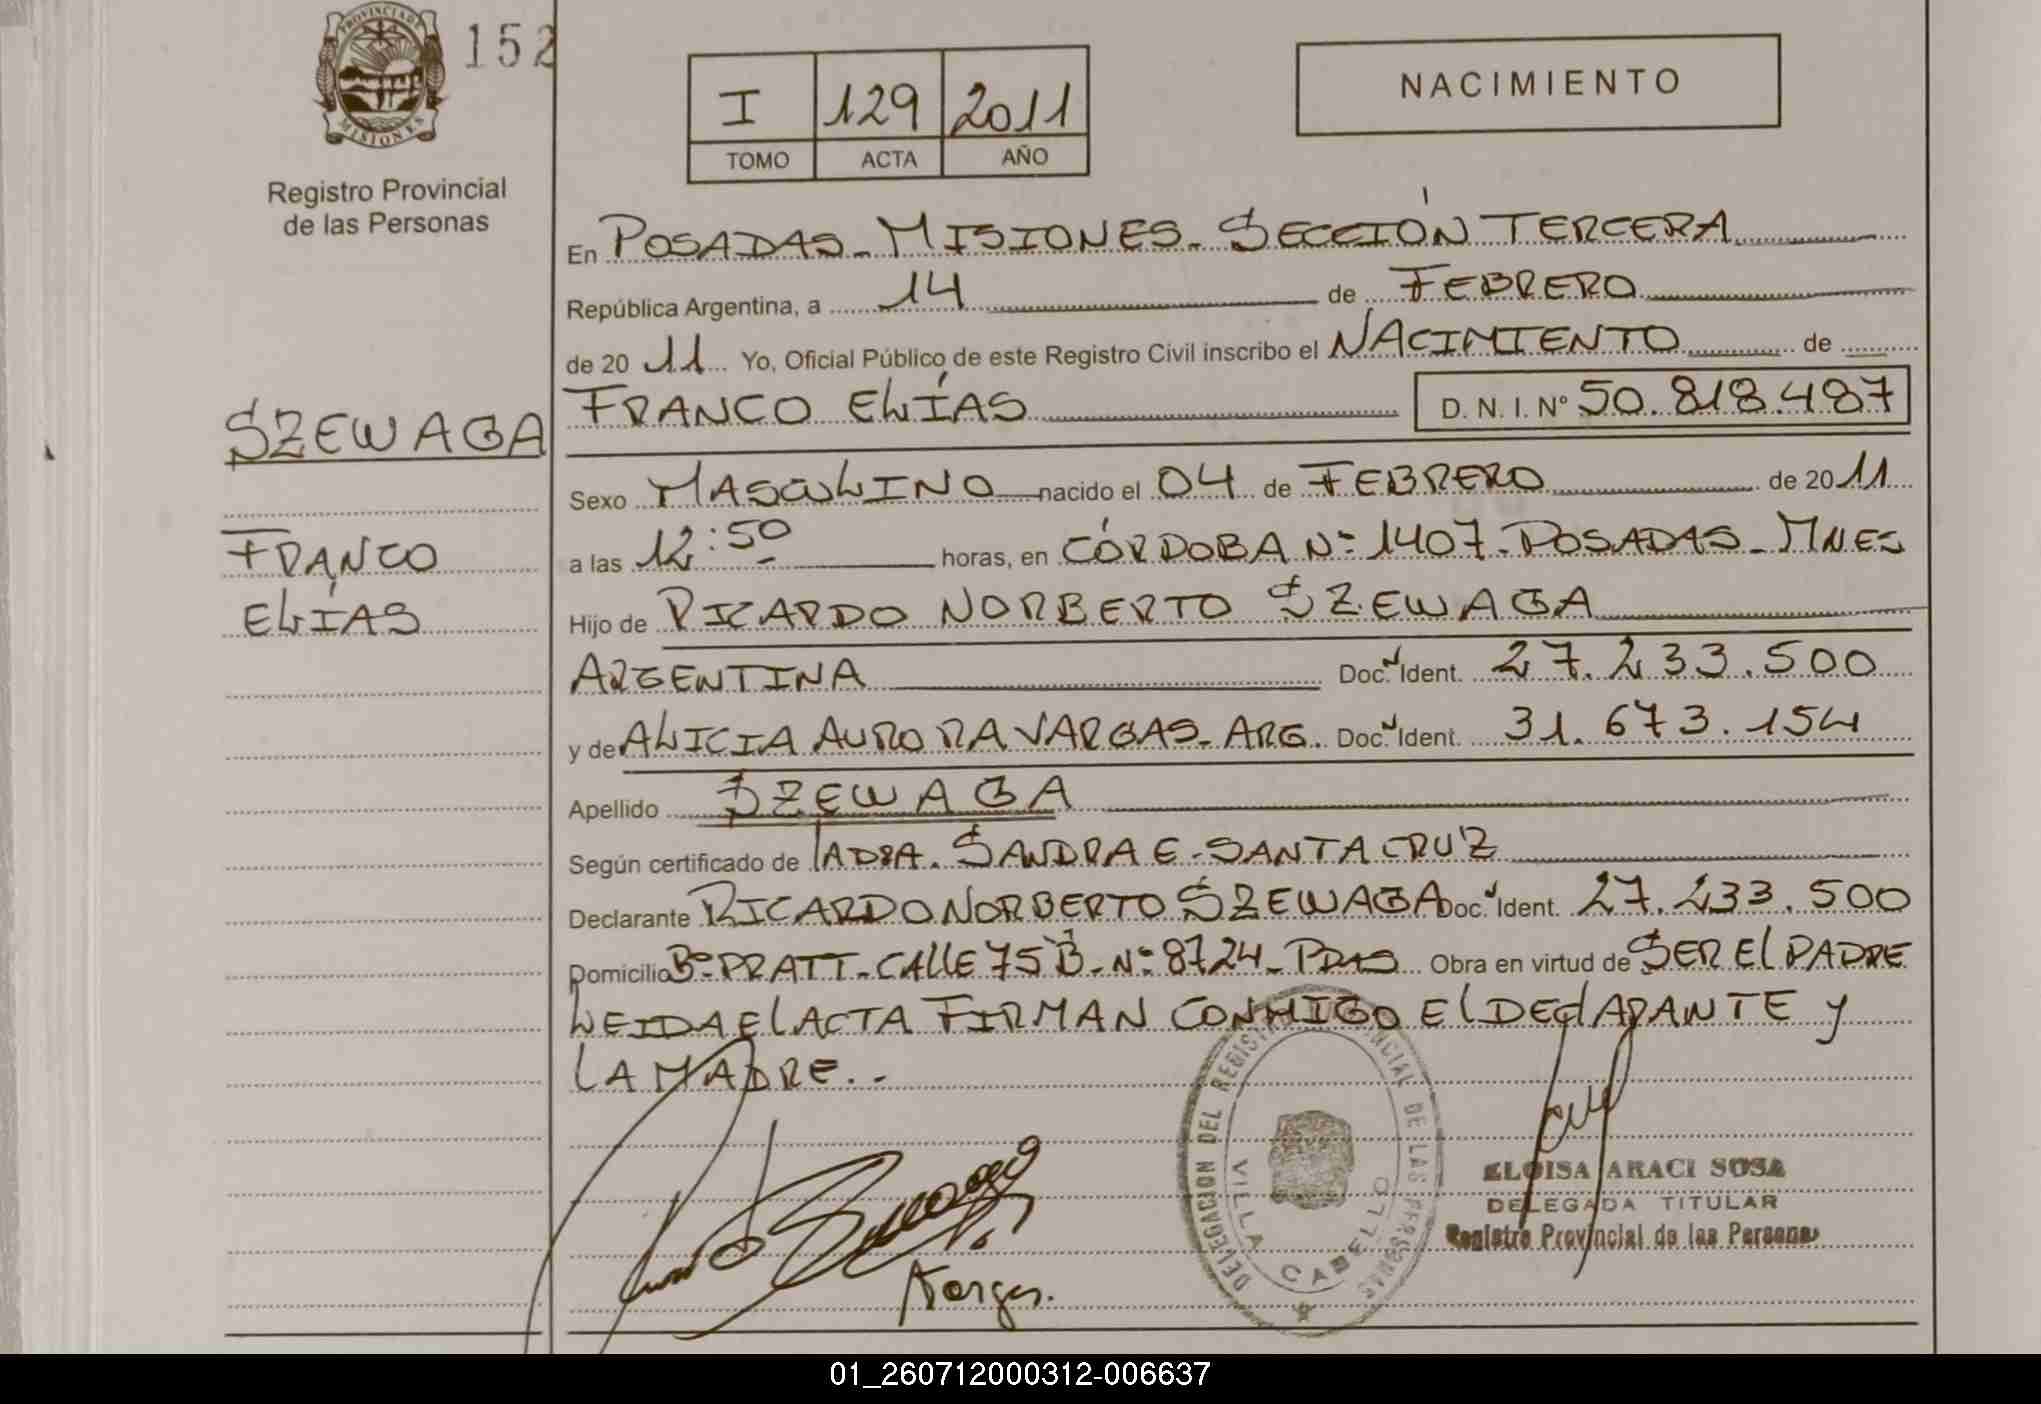 PROVINCIA DE
MISIONES
152
Registro Provincial
de las Personas
I 129 2011
TOMO ACTA AÑO
NACIMIENTO
En POSADAS - MISIONES - SECCIÓN TERCERA
República Argentina, a 14 de FEBRERO
de 20 11 Yo, Oficial Público de este Registro Civil inscribo el NACIMIENTO de
FRANCO ELÍAS D. N. I. Nº 50.818.487
SZEWAGA
FRANCO
ELÍAS
Sexo MASCULINO nacido el 04 de FEBRERO de 20 11
a las 12:50 horas, en CÓRDOBA Nº 1407 - POSADAS - MNES
Hijo de RICARDO NORBERTO SZEWAGA
ARGENTINA Doc. Ident. 27.233.500
y de ALICIA AURORA VARGAS - ARG. Doc. Ident. 31.673.154
Apellido SZEWAGA
Según certificado de SANDRA E. SANTA CRUZ
Declarante RICARDO NORBERTO SZEWAGA Doc. Ident. 27.233.500
Domicilio Bº PRATT - CALLE 75 B - Nº 8724 - PDAS Obra en virtud de SER EL PADRE
LEIDA EL ACTA FIRMAN CONMIGO EL DECLARANTE Y
LA MADRE. -
DELEGACION DEL REGISTRO PROVINCIAL DE LAS PERSONAS
VILLA CABELLO
ELOISA ARACI SOSA
DELEGADA TITULAR
Registro Provincial de las Personas
01_260712000312-006637